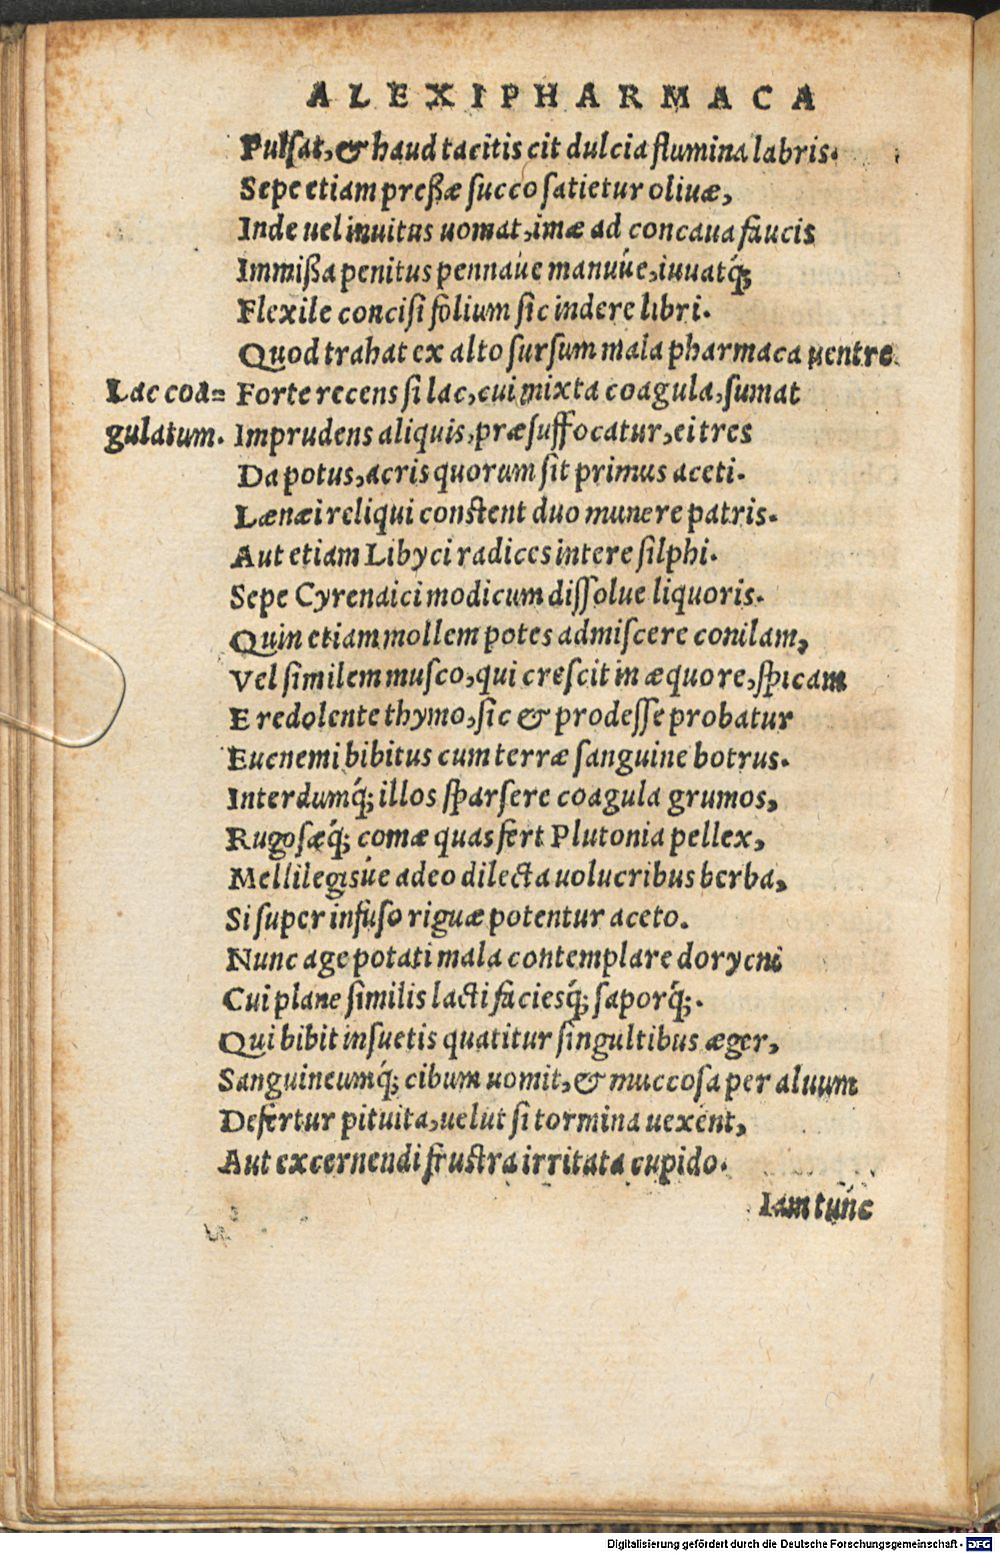 ALEXIPHARMACA
Pulſat, & haud tacitis cit dulcia flumina labris.
Sepe etiam preßæ ſucco ſatietur oliuæ,
Inde uel inuitus uomat, imæ ad concaua faucis
Immißa penitus pennáue manuúe, iuuatq́;
Flexile conciſi folium ſic indere libri.
Quod trahat ex alto ſurſum mala pharmaca uentre.
Lac coa=
gulatum.
Forte recens ſi lac, cui mixta coagula, ſumat
Imprudens aliquis, præſuffocatur, ei tres
Da potus, acris quorum ſit primus aceti.
Lænæi reliqui conſtent duo munere patris.
Aut etiam Libyci radices intere ſilphi.
Sepe Cyrenaici modicum diſſolue liquoris.
Quin etiam mollem potes admiſcere conilam,
Vel ſimilem muſco, qui creſcit in æquore, ſpicam
E redolente thymo, ſic & prodeſſe probatur
Eucnemi bibitus cum terræ ſanguine botrus.
Interdumq́; illos ſparſere coagula grumos,
Rugoſæq́; comæ quas fert Plutonia pellex,
Mellilegisúe adeo dilecta uolucribus herba,
Si ſuper infuſo riguæ potentur aceto.
Nunc age potati mala contemplare dorycni
Cui plane ſimilis lacti facieſq́; ſaporq́;.
Qui bibit inſuetis quatitur ſingultibus æger,
Sanguineumq́; cibum uomit, & muccoſa per aluum
Defertur pituita, uelut ſi tormina uexent,
Aut excernendi fruſtra irritata cupido.
Iam tunc
Digitalisierung gefördert durch die Deutsche Forschungsgemeinschaft - DFG